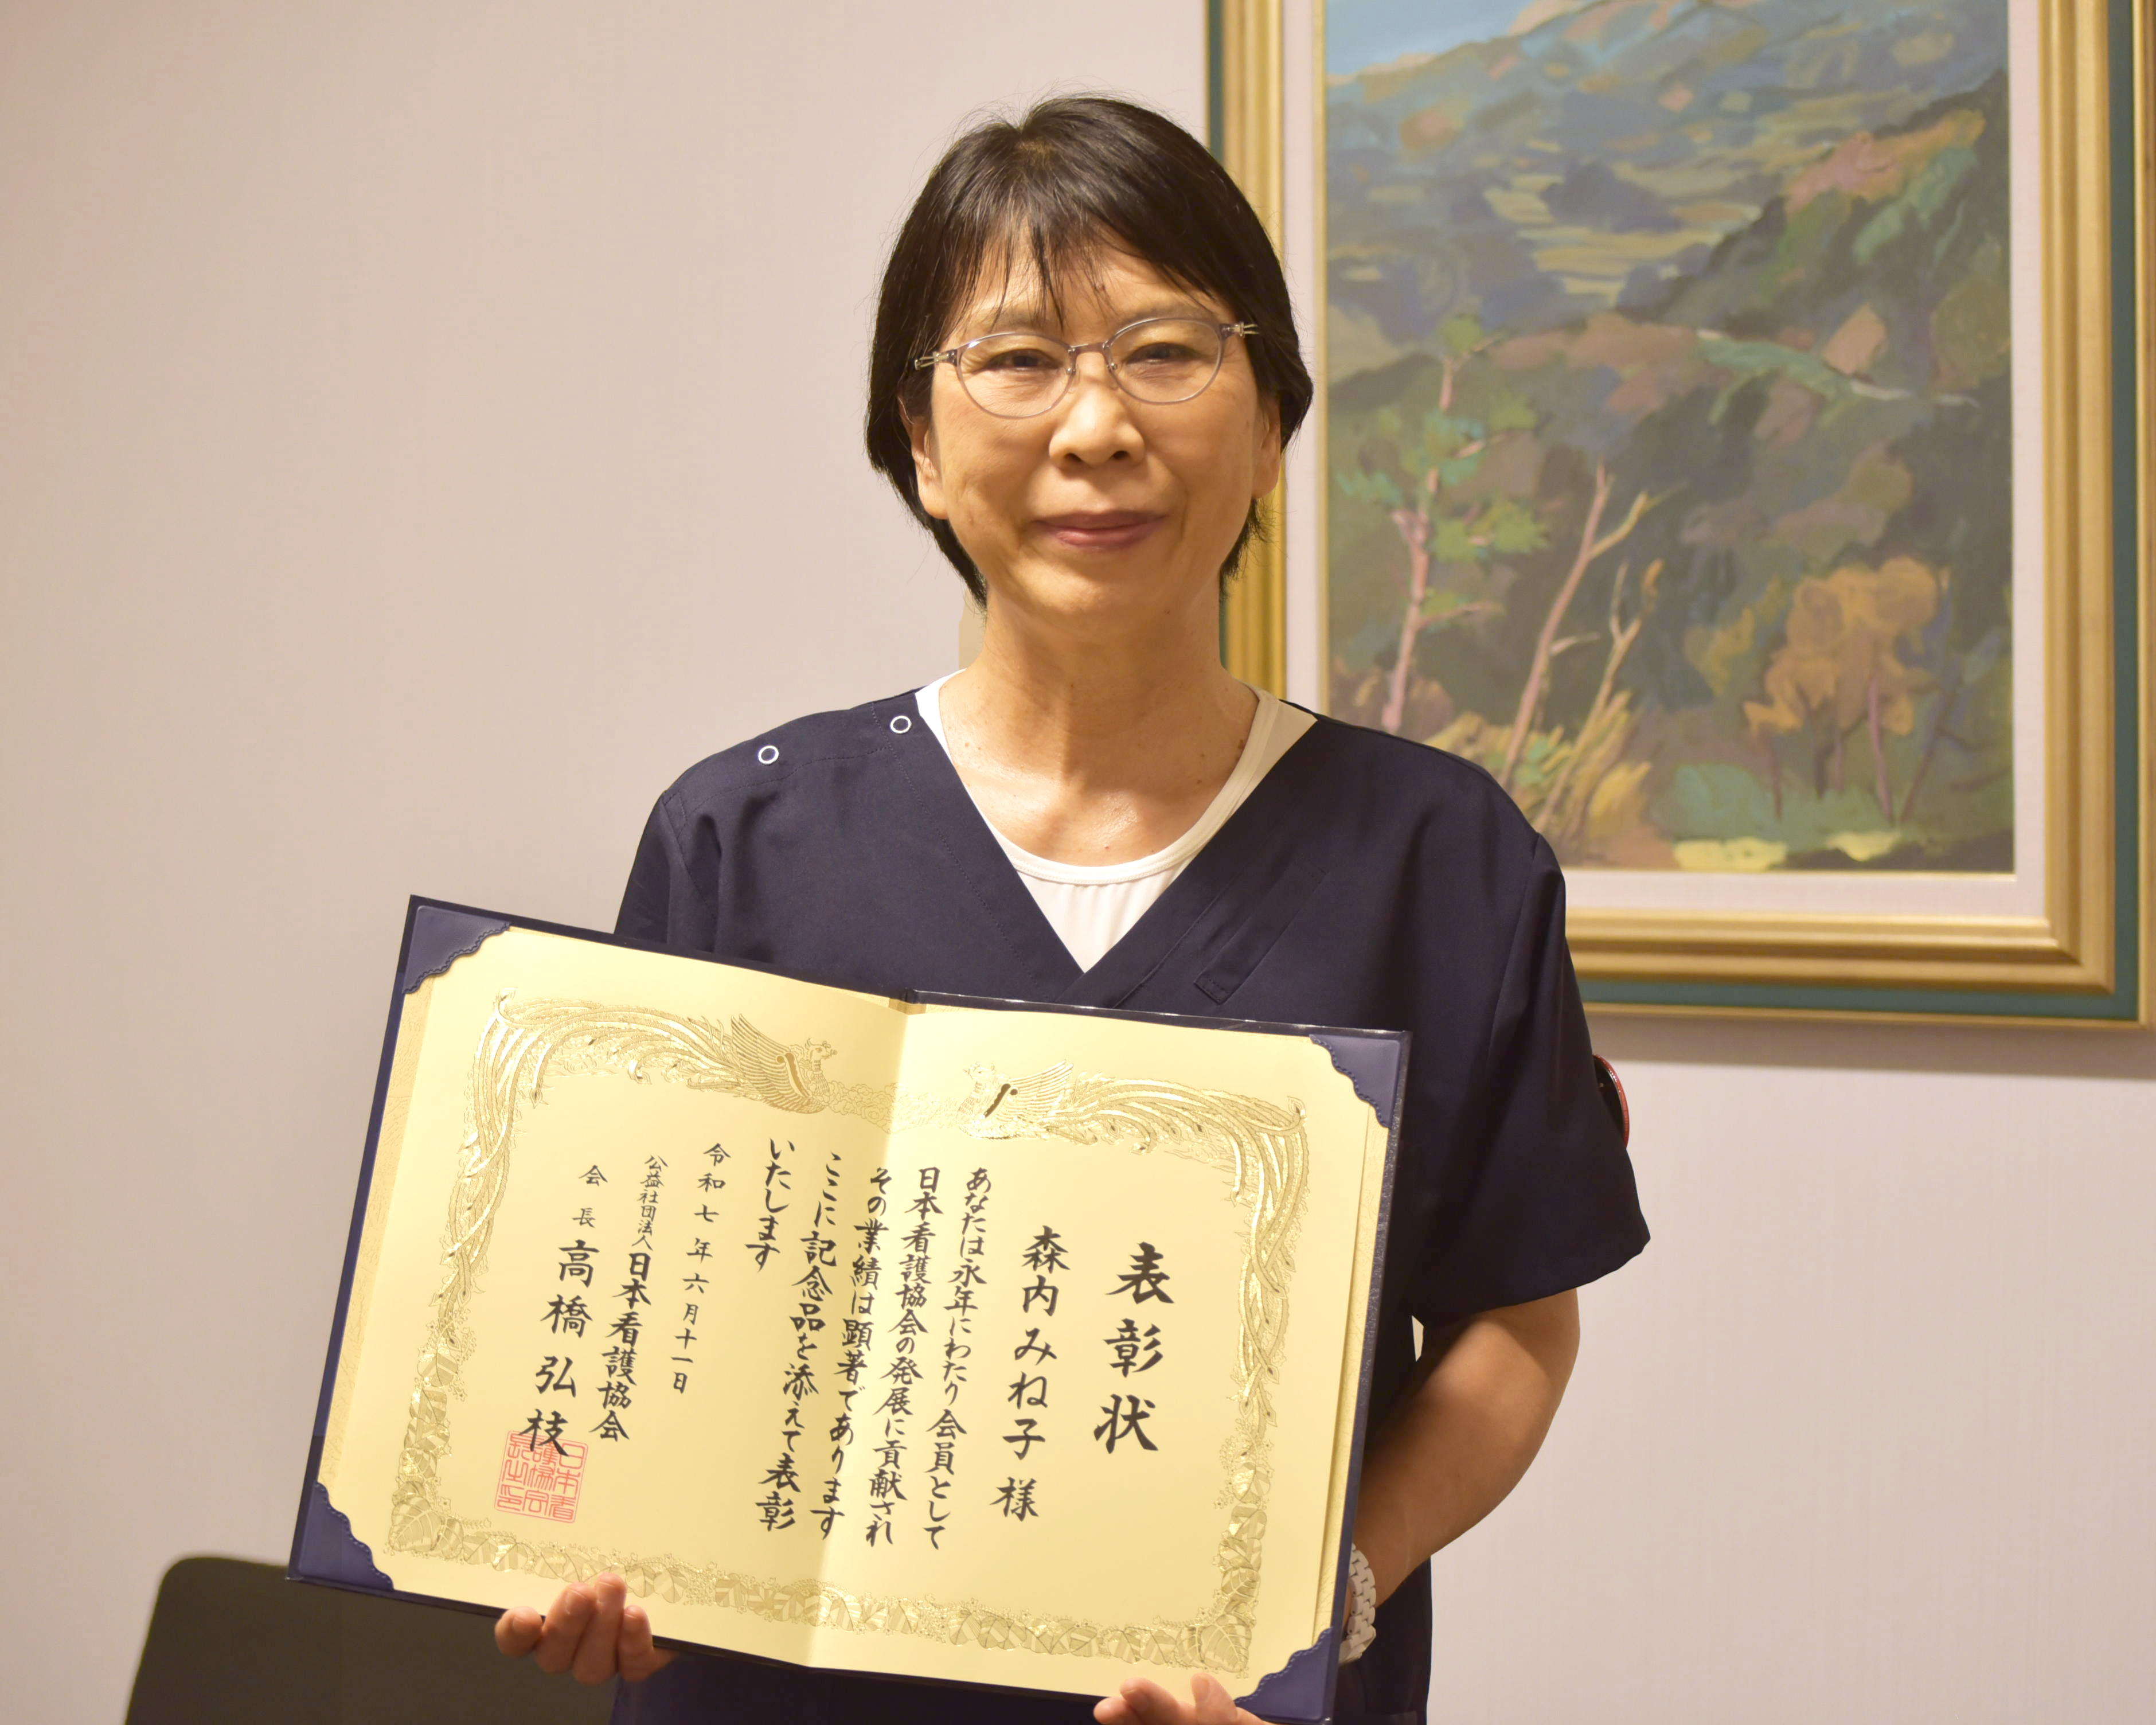 表彰状
森内みね子様
あなたは永年にわたり会員として
日本看護協会の発展に貢献され
その業績は顕著であります
ここに記念品を添えて表彰
いたします
令和七年六月十一日
公益社団法人日本看護協会
会長高橋弘枝
日本看
護協会
長之印